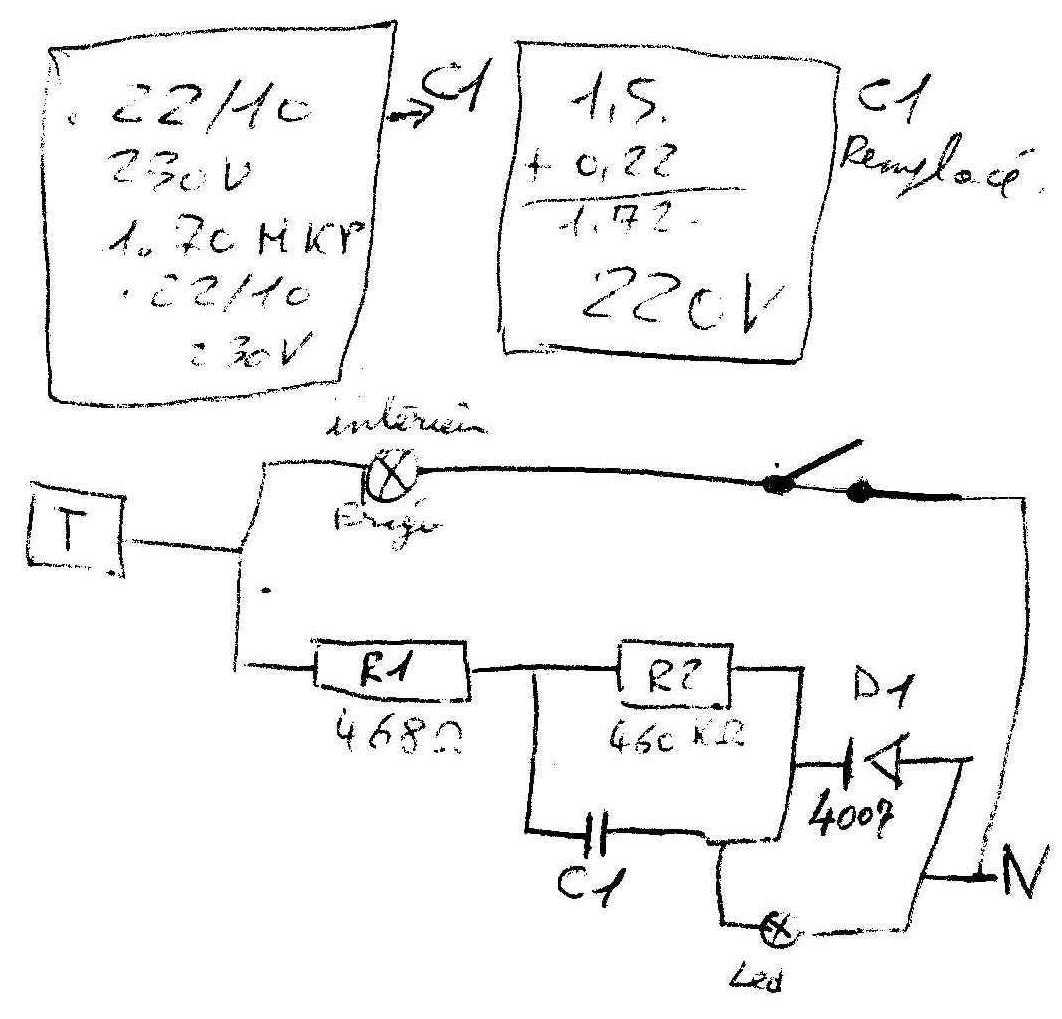 . 22/10
230V
1.70 MKP
. 22/10
230V
→ C1
1,5.
+ 0,22
1.72.
220V
C1
Remplacé.
intérieur
Frigo
T
R1
468Ω
R2
460 KΩ
D1
4007
C1
N
Led